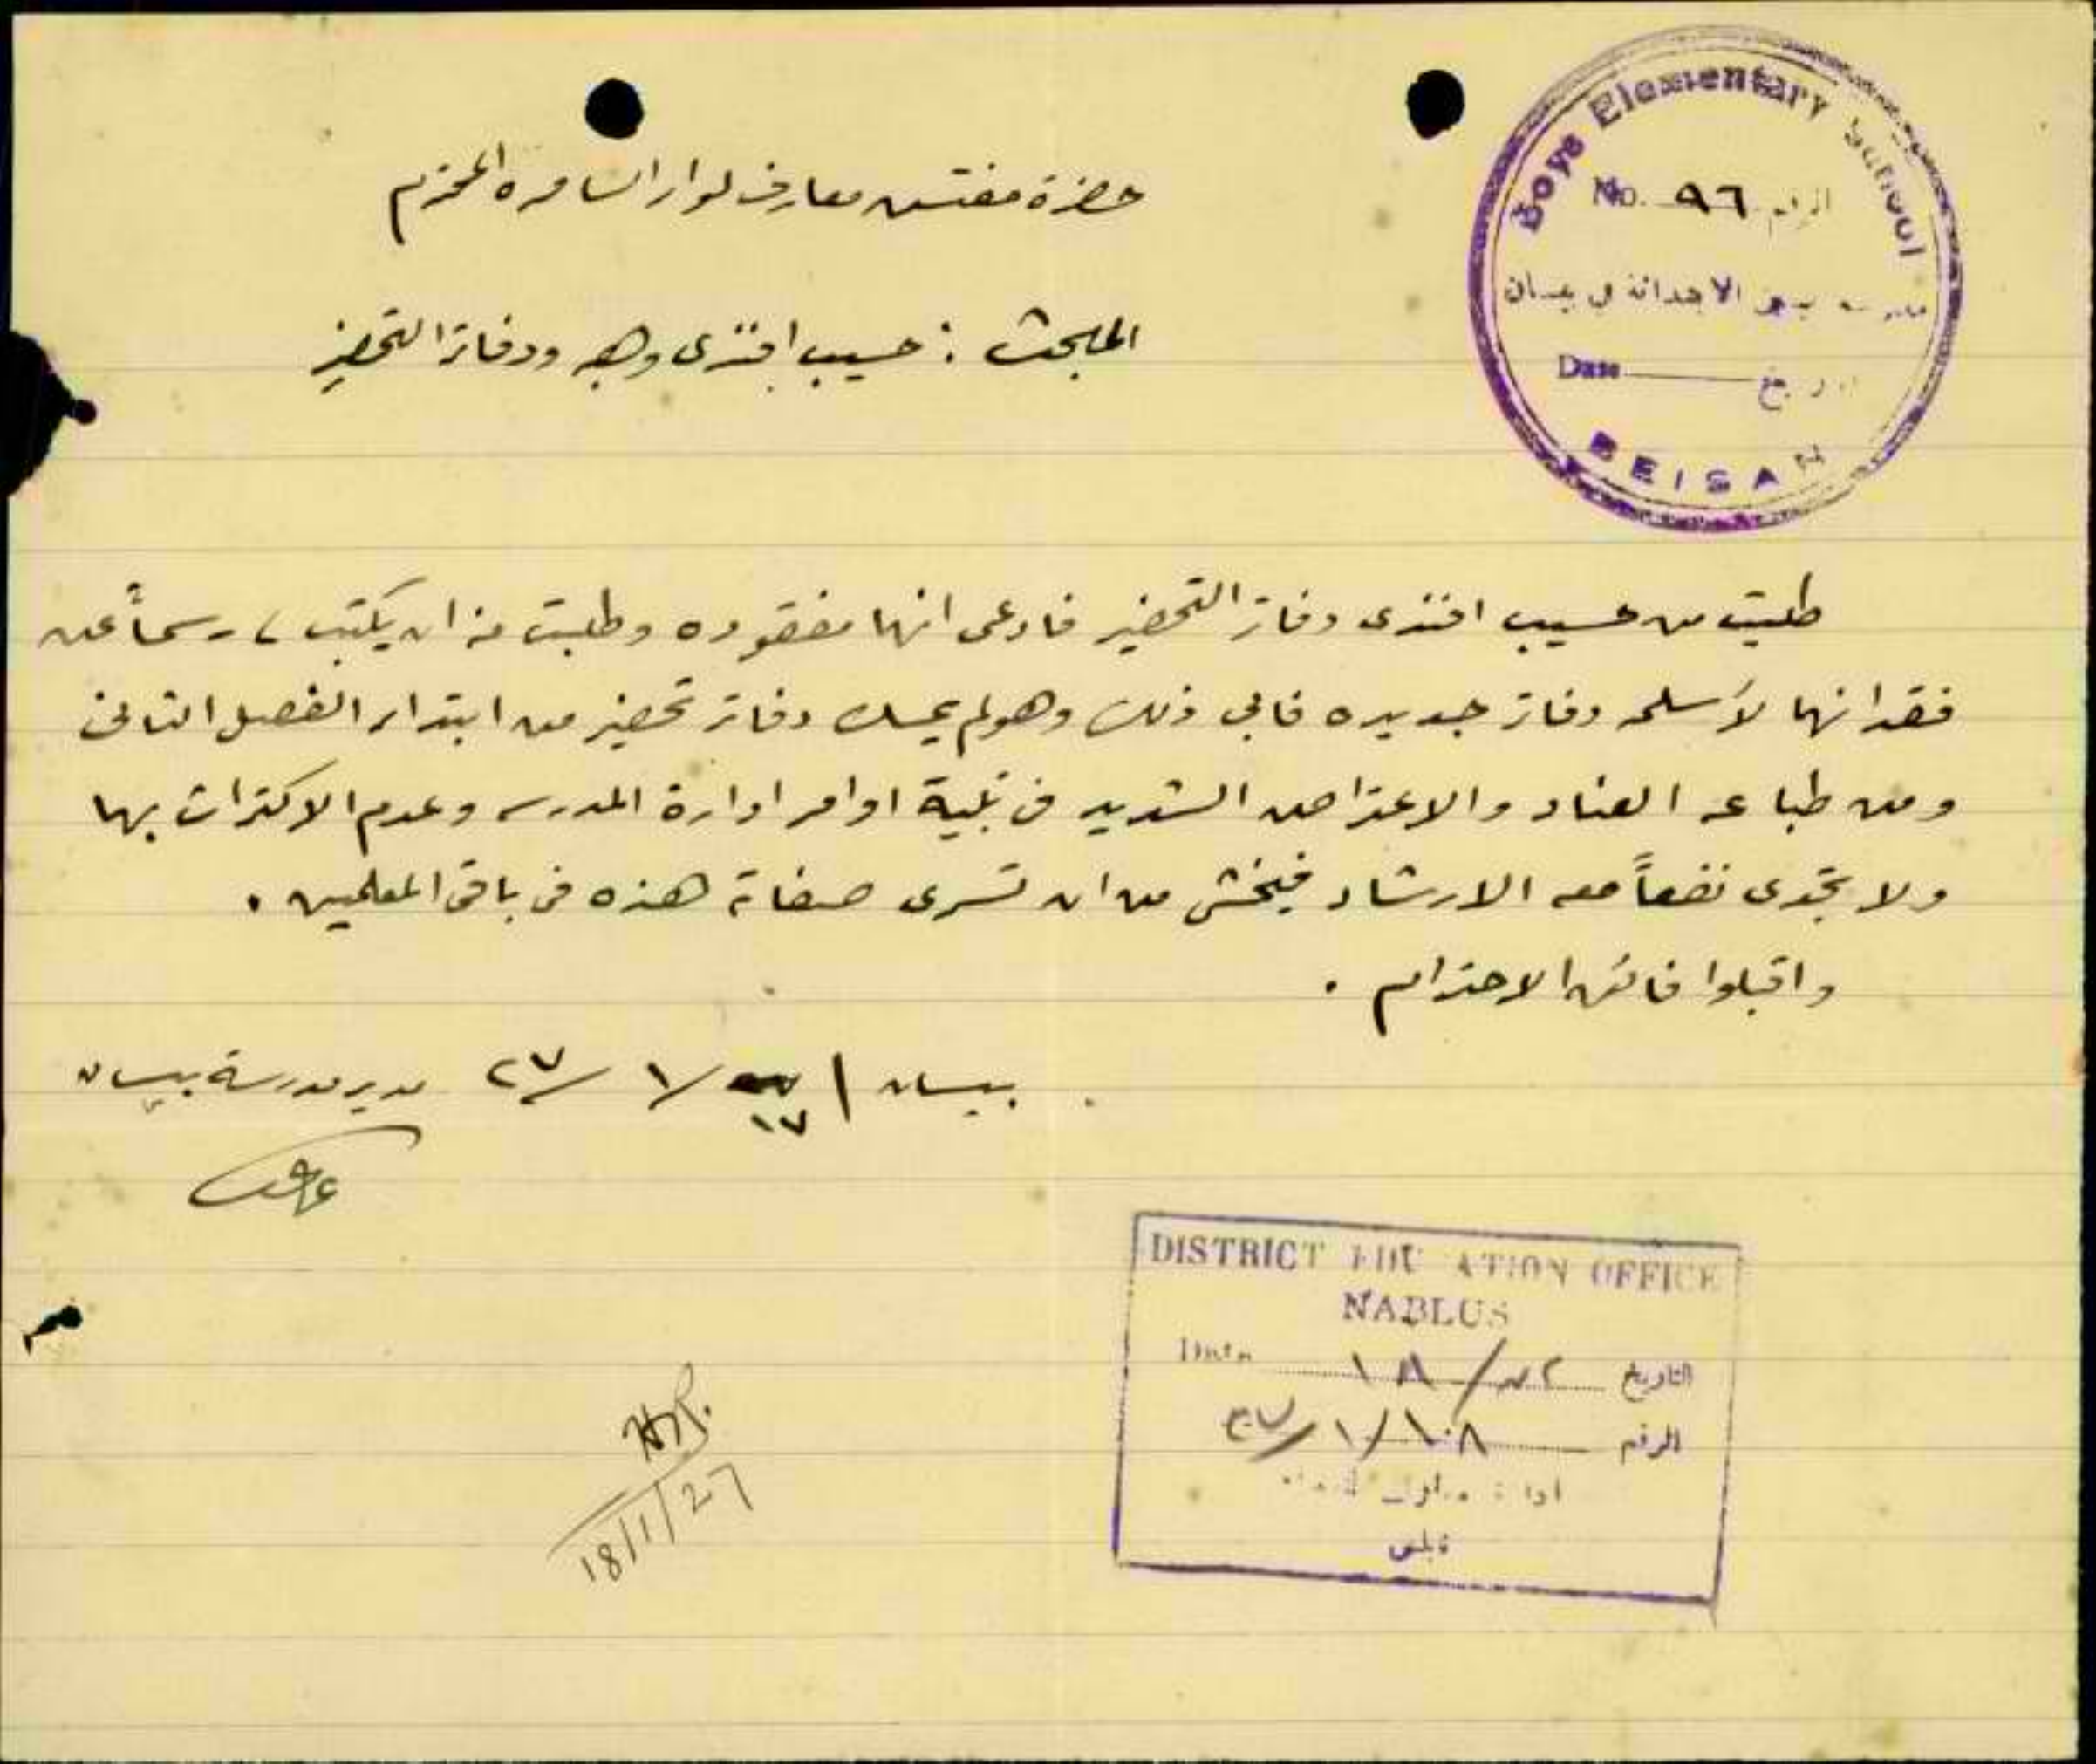 Boys Elementary School
No. ٩٦ الرقم
مدرسة الابتدائية في بيسان
Date تاريخ
BEISAN
حضرة مفتش معارف لواء السامره المحترم
المبحث : حسيب افندى وهبه ودفاتر التحضير
طلبت من حسيب افندى دفاتر التحضير فادعى انها مفقوده وطلبت منه ان يكتب لي رسمياً عن
فقدانها لأسلمه دفاتر جديده فابى ذلك وهو لم يمسك دفاتر تحضير من ابتداء الفصل الثانى
ومن طباعه العناد والاعتراض الشديد فى تلبية اوامر ادارة المدرسه وعدم الاكتراث بها
ولا يجدى نفعاً معه الارشاد فيخشى من ان تسرى صفاته هذه فى باقى المعلمين .
واقبلوا فائق الاحترام .
بيسان ١٧/١/٢٧ مدير مدرسة بيسان
DISTRICT EDUCATION OFFICE
NABLUS
Date ١٨ التاريخ
١٠٨/١/٢٧ الرقم
نابلس
18/1/27